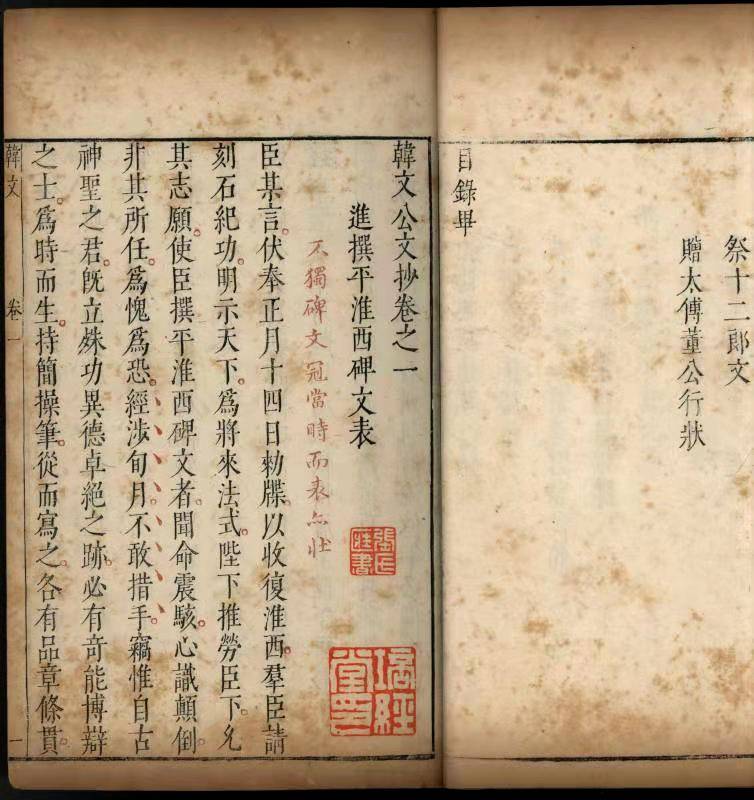 祭十二郎文
贈太傅董公行狀
目錄畢
韓文公文抄卷之一
進撰平淮西碑文表
不獨碑文冠當時而表亦壯
臣某言伏奉正月十四日勑牒以收復淮西羣臣請
刻石紀功明示天下爲將來法式陛下推勞臣下允
其志願使臣撰平淮西碑文者聞命震駭心識顛倒
非其所任爲愧爲恐經涉旬月不敢措手竊惟自古
神聖之君旣立殊功異德卓絕之跡必有奇能博辯
之士爲時而生持簡操筆從而寫之各有品章條貫
韓文 卷一 一